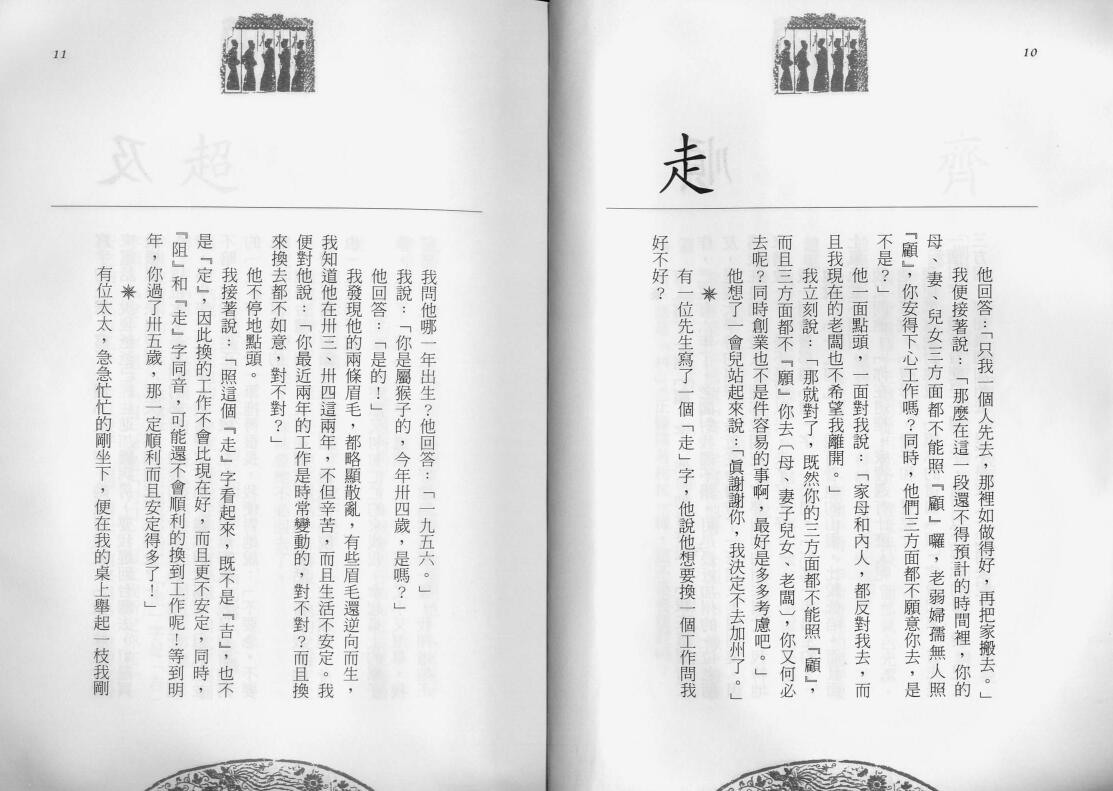 10
走
他回答:「只我一個人先去,那裡如做得好,再把家搬去。」
我便接著說:「那麼在這一段還不得預計的時間裡,你的
母、妻、兒女三方面都不能照『顧』囉,老弱婦孺無人照
『顧』,你安得下心工作嗎?同時,他們三方面都不願意你去,是
不是?」
他一面點頭,一面對我說:「家母和內人,都反對我去,而
且我現在的老闆也不希望我離開。」
我立刻說:「那就對了,既然你的三方面都不能照『顧』,
而且三方面都不『願』你去(母、妻子兒女、老闆),你又何必
去呢?同時創業也不是件容易的事啊,最好是多多考慮吧。」
他想了一會兒站起來說:「眞謝謝你,我決定不去加州了。」
✴
有一位先生寫了一個「走」字,他說他想要換一個工作問我
好不好?
11
我問他哪一年出生?他回答:「一九五六。」
我說:「你是屬猴子的,今年卅四歲,是嗎?」
他回答:「是的!」
我發現他的兩條眉毛,都略顯散亂,有些眉毛還逆向而生,
我知道他在卅三、卅四這兩年,不但辛苦,而且生活不安定。我
便對他說:「你最近兩年的工作是時常變動的,對不對?而且換
來換去都不如意,對不對?」
他不停地點頭。
我接著說:「照這個『走』字看起來,既不是『吉』,也不
是『定』,因此換的工作不會比現在好,而且更不安定,同時,
『阻』和『走』字同音,可能還不會順利的換到工作呢!等到明
年,你過了卅五歲,那一定順利而且安定得多了!」
✴
有位太太,急急忙忙的剛坐下,便在我的桌上舉起一枝我剛